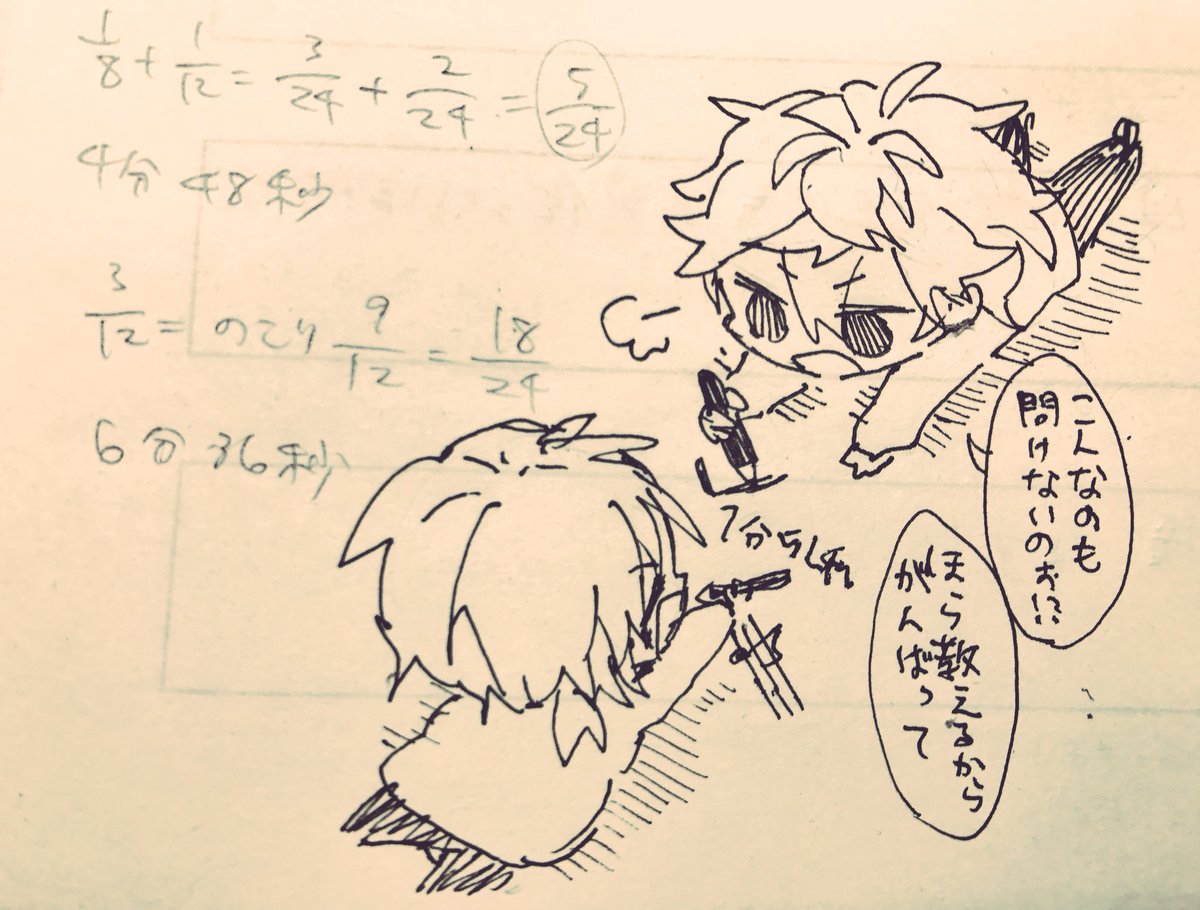 1/8 + 1/12 = 3/24 + 2/24 = 5/24
4分 48秒
3/12 = のこり 9/12 = 18/24
6分 36秒
こんなのも
問けないのぉ!?
ほら教えるから
がんばって